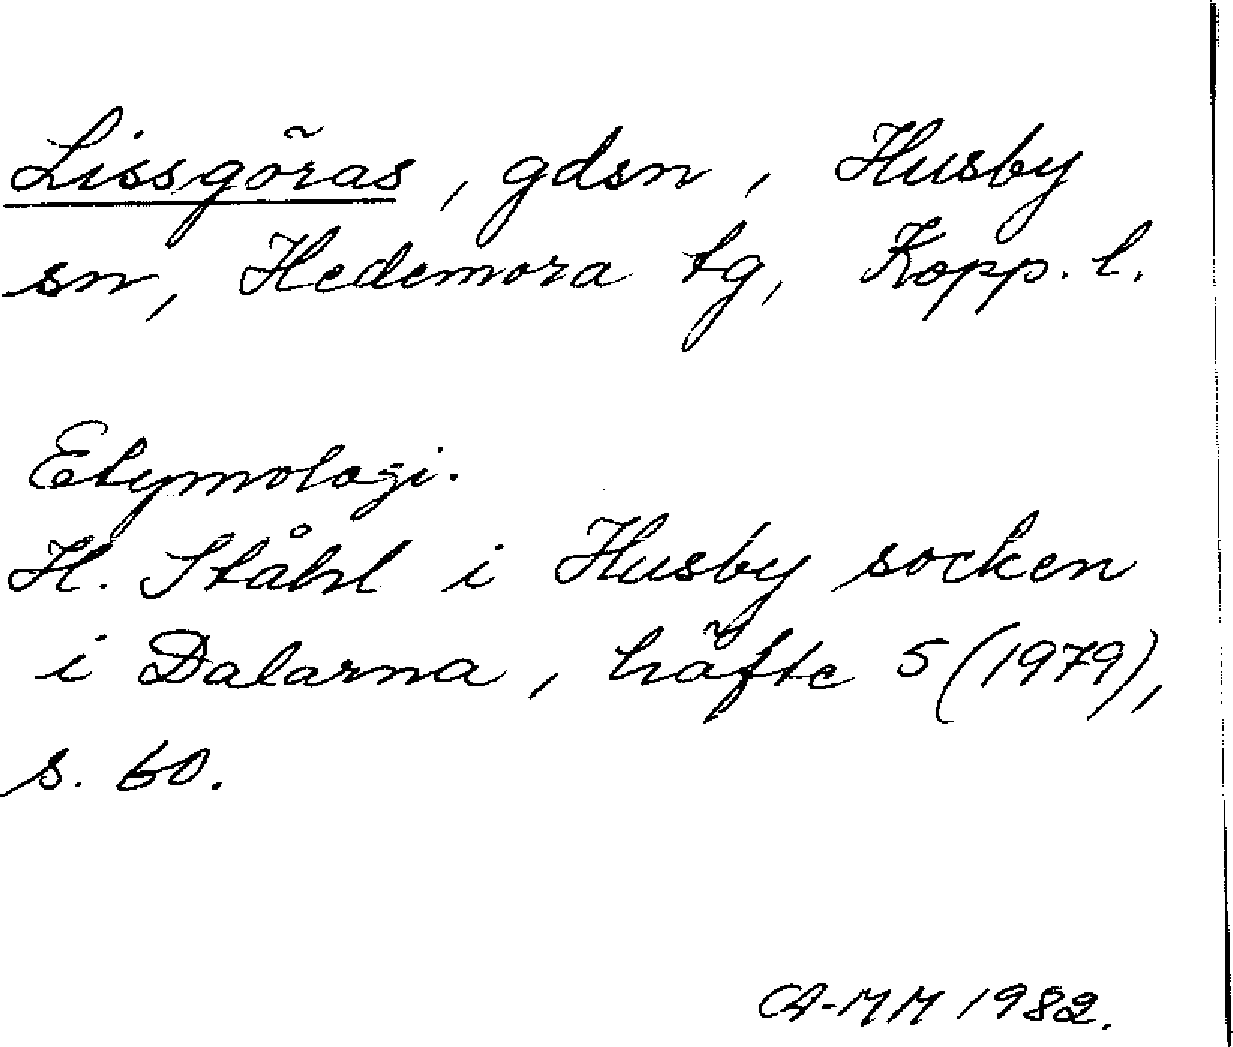 Lissgöras, gdsn, Husby
sn, Hedemora tg, Kopp. l.
Etymologi.
H. Ståhl i Husby socken
i Dalarna, häfte 5 (1979),
s. 60.
A-MM 1982.